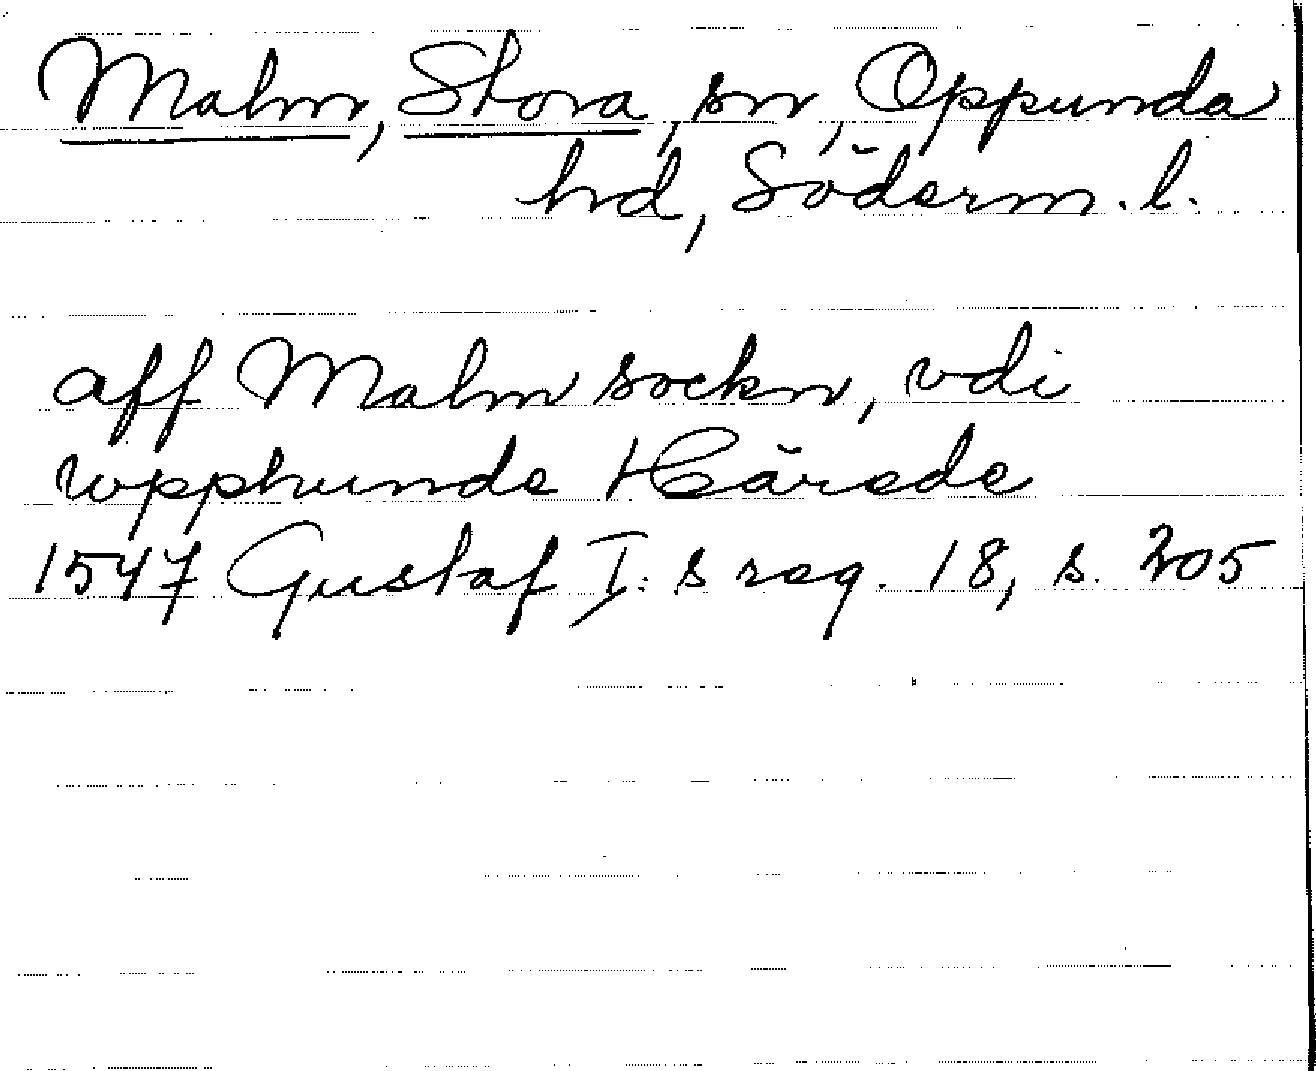 Malm, Stora, sn, Oppunda
hd, Söderm. l.
aff Malm sockn, vdi
wpphunde Härede
1547 Gustaf I:s reg. 18, s. 205